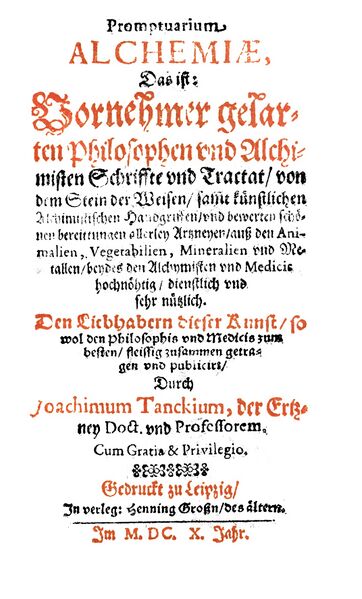 Promptuarium
ALCHEMIÆ,
Das ist:
Vornehmer gelar-
ten Philosophen vnd Alchi-
misten Schriffte vnd Tractat/ von
dem Stein der Weisen/ samt künstlichen
Alchimistischen Handgriffen/ vnd bewerten schö-
nen bereittungen allerley Artzneyen/ auß den Ani-
malien, Vegetabilien, Mineralien vnd Me-
tallen/ beydes den Alchymisten vnd Medicis
hochnöhtig/ dienstlich vnd
sehr nützlich.
Den Liebhabern dieser Kunst/ so
wol den Philosophis vnd Medicis zum
besten/ fleissig zusammen getra-
gen vnd publicirt/
Durch
Joachimum Tanckium, der Ertz-
ney Doct. vnd Professorem.
Cum Gratia & Privilegio.
Gedruckt zu Leipzig/
In verleg: Henning Großn/ des ältern.
Im M. DC. X. Jahr.